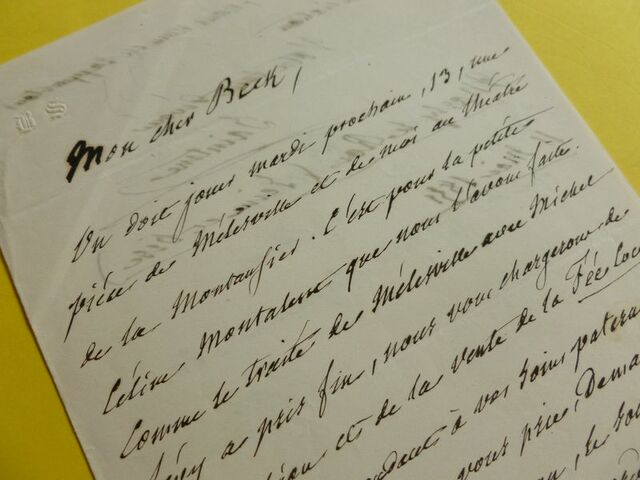 B S
Mon cher Beck,
On doit jouer mardi prochain, 13, une
pièce de Mélesville et de moi au théâtre
de la Montansier. C'est pour la petite
Céline Montaland que nous l'avons faite.
Comme le traité de Mélesville avec Michel
Lévy a pris fin, nous vous chargerons de
et de la vente de la Fée Coc
à vos soins patern
vous prie, Dema
le